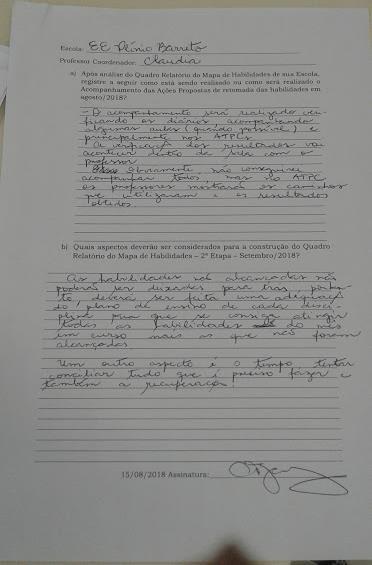 Escola: EE Plínio Barreto
Professor Coordenador: Claudia
a) Após análise do Quadro Relatório do Mapa de Habilidades de sua Escola,
registre a seguir como está sendo realisado ou como será realizado o
Acompanhamento das Ações Propostas de retomada das habilidades em
agosto/2018?
- O acompanhamento será realizado veri-
ficando os diários, acompanhando
algumas aulas (quando possível) e
principalmente nos ATPCs
A verificação dos resultados vai
acontecer dentro da sala com o
professor
Obviamente, não conseguirei
acompanhar todos, mas no ATPC
os professores mostrarão os caminhos
que utilizaram e os resultados
obtidos.
b) Quais aspectos deverão ser considerados para a construção do Quadro
Relatório do Mapa de Habilidades – 2ª Etapa – Setembro/2018?
As habilidades não alcançadas não
poderão ser deixadas para trás, portan-
to, deverá ser feita uma adequação
do plano de ensino de cada disci-
plina para que se consiga atingir
todas as habilidades do mês
em curso mais as que não foram
alcançadas
Um outro aspecto é o tempo, tentar
conciliar tudo que é preciso fazer e
também a recuperação.
15/08/2018 Assinatura: